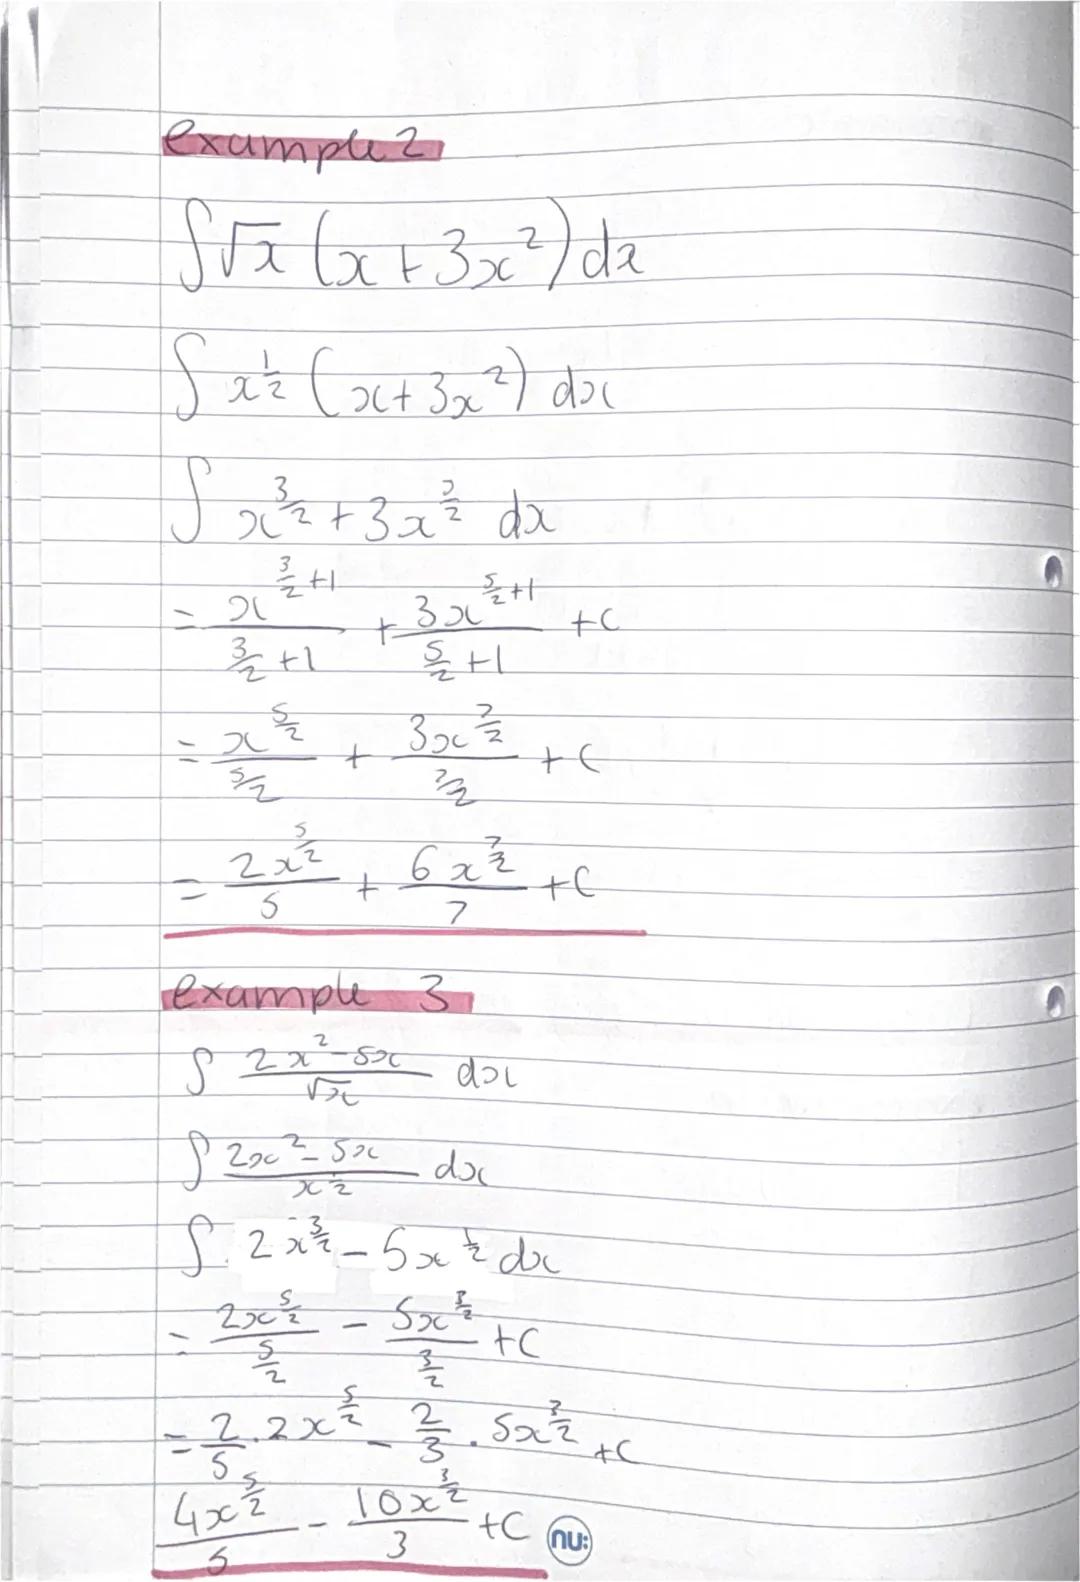 example 2
∫√x (x+3x²) dx
∫ x^(1/2) (x+3x²) dx
∫ x^(3/2) + 3x^(7/2) dx
= x^(3/2 +1) / (3/2 +1) + 3x^(5/2 +1) / (5/2 +1) + C
= x^(5/2) / (5/2) + 3x^(7/2) / (7/2) + C
= 2x^(5/2) / 5 + 6x^(7/2) / 7 + C
example 3
∫ (2x²-5x) / √x dx
∫ (2x²-5x) / x^(1/2) dx
∫ 2x^(3/2) - 5x^(1/2) dx
= 2x^(5/2) / (5/2) - 5x^(3/2) / (3/2) + C
= 2/5 . 2x^(5/2) - 2/3 . 5x^(3/2) + C
4x^(5/2) / 5 - 10x^(3/2) / 3 + C
nu: